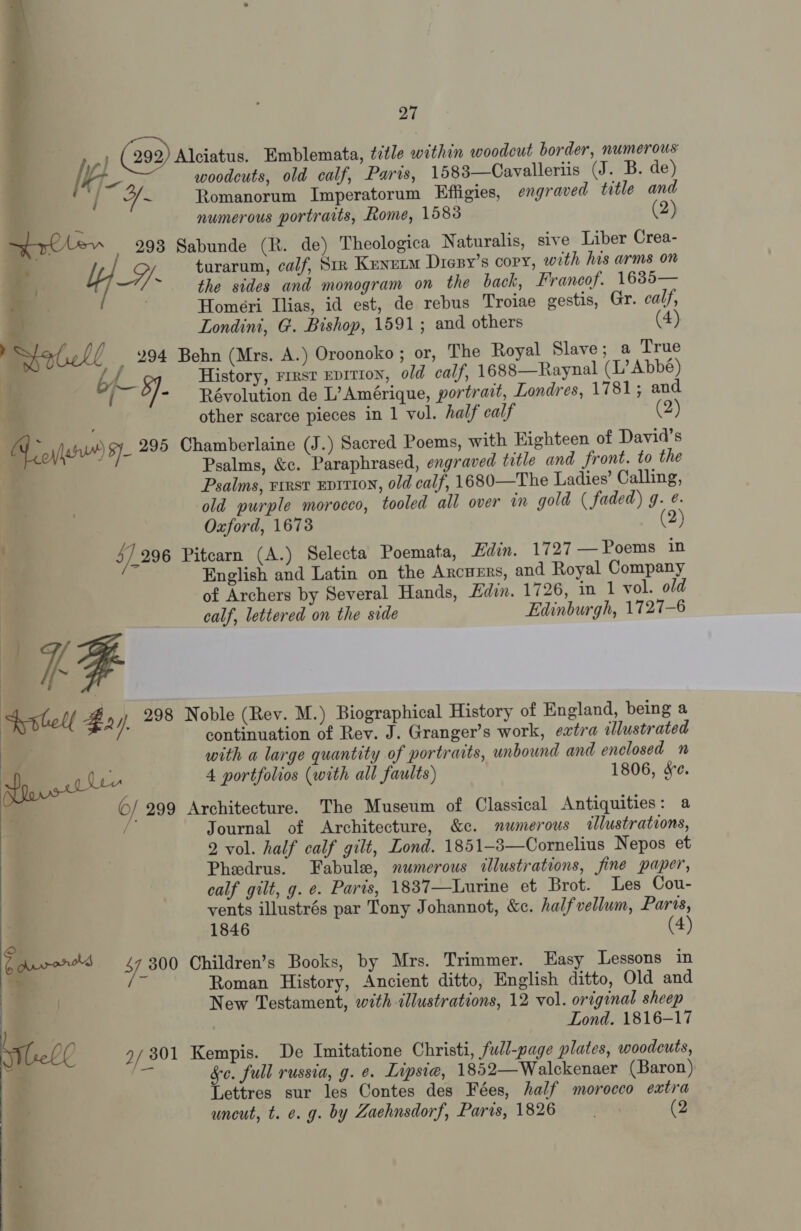 27
292) Alciatus. Emblemata, title within woodcut border, numerous
woodcuts, old calf, Paris, 1583—Cavalleriis (J. B. de)
Romanorum Imperatorum Effigies, engraved title and
numerous portraits, Rome, 1583 (2)
293 Sabunde (R. de) Theologica Naturalis, sive Liber Crea-
turarum, calf, Sir Kenelm Digby's copy, with his arms on
the sides and monogram on the back, Francof. 1635—
Homéri Ilias, id est, de rebus Troiae gestis, Gr. calf,
Londini, G. Bishop, 1591; and others (4)
294 Behn (Mrs. A.) Oroonoko; or, The Royal Slave; a True
History, FIRST EDITION, old calf, 1688—Raynal (L'Abbé)
Révolution de L'Amérique, portrait, Londres, 1781; and
other scarce pieces in 1 vol. half calf (2)
295 Chamberlaine (J.) Sacred Poems, with Eighteen of David's
Psalms, &c. Paraphrased, engraved title and front. to the
Psalms, FIRST EDITION, old calf, 1680—The Ladies' Calling,
old purple morocco, tooled all over in gold (faded) g. e.
Oxford, 1673 (2)
296 Pitcarn (A.) Selecta Poemata, Edin. 1727—Poems in
English and Latin on the Archers, and Royal Company
of Archers by Several Hands, Edin. 1726, in 1 vol. old
calf, lettered on the side Edinburgh, 1727-6
298 Noble (Rev. M.) Biographical History of England, being a
continuation of Rev. J. Granger's work, extra illustrated
with a large quantity of portraits, unbound and enclosed n
4 portfolios (with all faults) 1806, &c.
299 Architecture. The Museum of Classical Antiquities: a
Journal of Architecture, &c. numerous illustrations,
2 vol. half calf gilt, Lond. 1851-3—Cornelius Nepos et
Phædrus. Fabulæ, numerous illustrations, fine paper,
calf gilt, g. e. Paris, 1837—Lurine et Brot. Les Cou-
vents illustrés par Tony Johannot, &c. half vellum, Paris,
1846 (4)
300 Children's Books, by Mrs. Trimmer. Easy Lessons in
Roman History, Ancient ditto, English ditto, Old and
New Testament, with illustrations, 12 vol. original sheep
Lond. 1816-17
301 Kempis. De Imitatione Christi, full-page plates, woodcuts,
&c. full russia, g. e. Lipsiæ, 1852—Walckenaer (Baron)
Lettres sur les Contes des Fées, half morocco extra
uncut, t. e. g. by Zaehnsdorf, Paris, 1826 (2